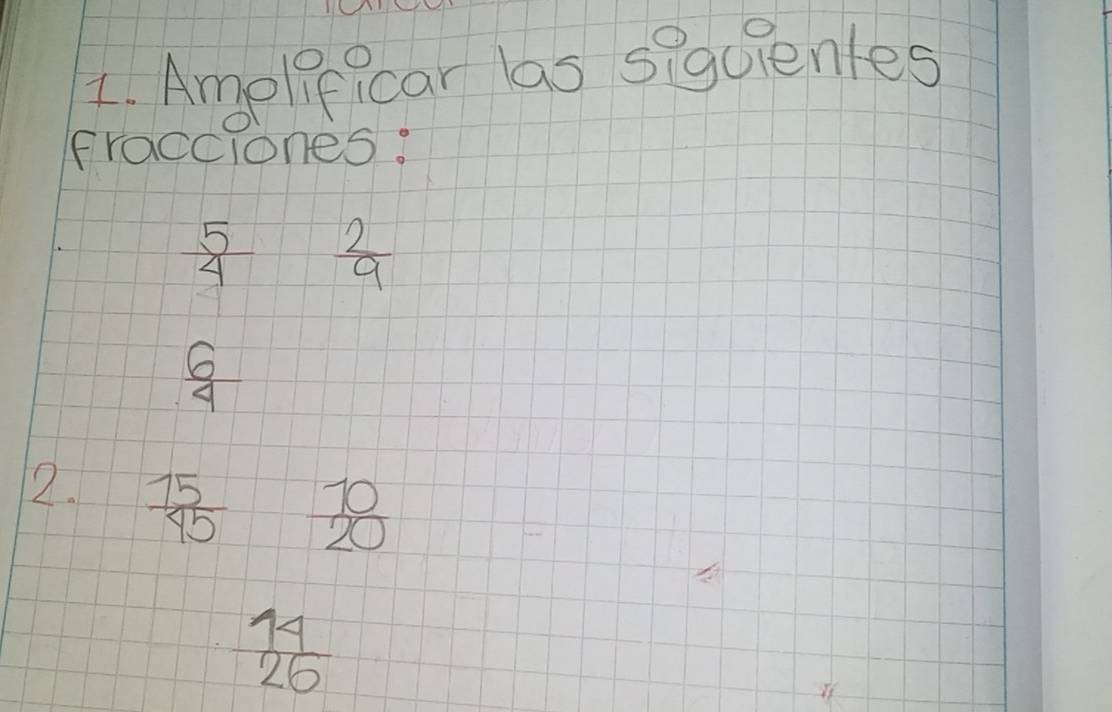 1. Amplificar las siguientes
fracciones:
5/4 2/9
6/4
2. 15/45 10/20
14/26